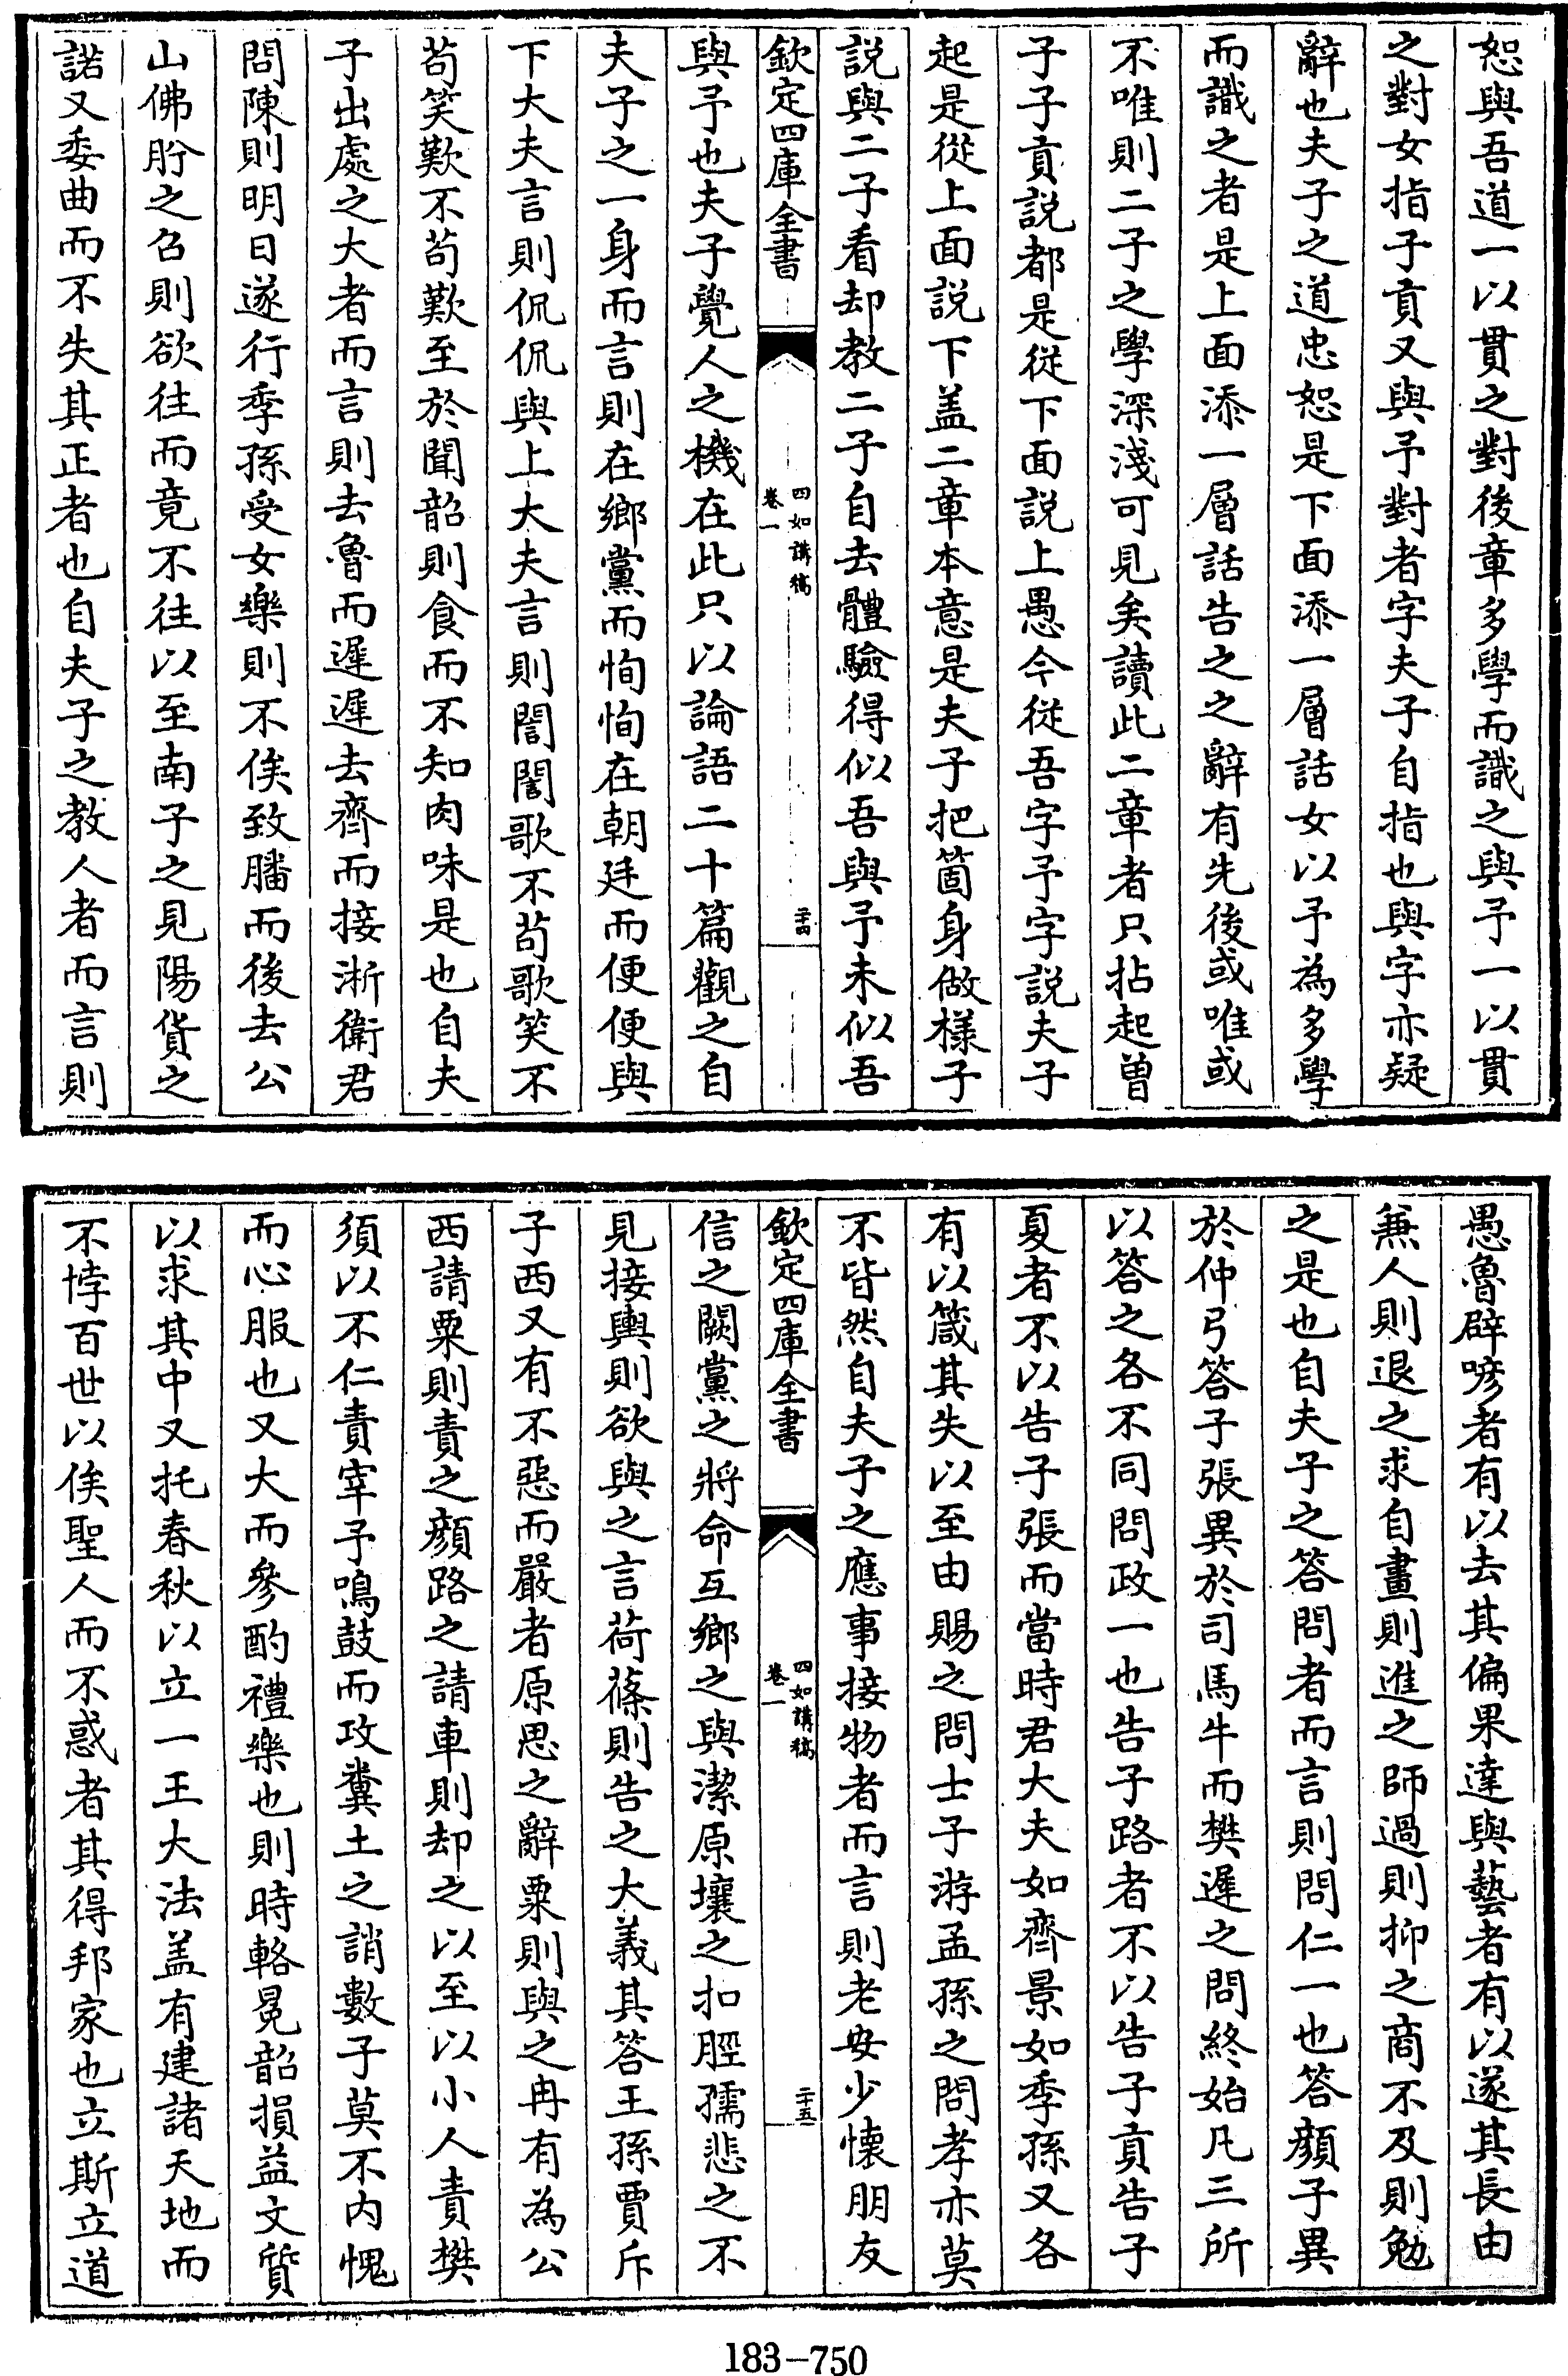 恕與吾道一以貫之對後章多學而識之與予一以貫
之對女指子貢又與予對者字夫子自指也與字亦疑
辭也夫子之道忠恕是下面添一層話女以予為多學
而識之者是上面添一層話告之之辭有先後或唯或
不唯則二子之學深淺可見矣讀此二章者只拈起曽
子子貢説都是從下面説上愚今從吾字予字説夫子
起是從上面説下盖二章本意是夫子把箇身做様子
説與二子看却教二子自去體驗得似吾與予未似吾
欽定四庫全書
四如講稿
卷一
二十四
與予也夫子覺人之機在此只以論語二十篇觀之自
夫子之一身而言則在鄉黨而恂恂在朝廷而便便與
下大夫言則侃侃與上大夫言則誾誾歌不茍歌笑不
茍笑歎不茍歎至於聞韶則食而不知肉味是也自夫
子出處之大者而言則去魯而遲遲去齊而接淅衛君
問陳則明日遂行季孫受女樂則不俟致膰而後去公
山佛肸之召則欲往而竟不往以至南子之見陽貨之
諾又委曲而不失其正者也自夫子之教人者而言則
愚魯辟喭者有以去其偏果達與藝者有以遂其長由
兼人則退之求自畫則進之師過則抑之商不及則勉
之是也自夫子之答問者而言則問仁一也答顔子異
於仲弓答子張異於司馬牛而樊遲之問終始凡三所
以答之各不同問政一也告子路者不以告子貢告子
夏者不以告子張而當時君大夫如齊景如季孫又各
有以箴其失以至由賜之問士子游孟孫之問孝亦莫
不皆然自夫子之應事接物者而言則老安少懐朋友
欽定四庫全書
四如講稿
卷一
二十五
信之闕黨之將命互鄉之與潔原壤之扣脛孺悲之不
見接輿則欲與之言荷蓧則告之大義其答王孫賈斥
子西又有不惡而嚴者原思之辭粟則與之冉有為公
西請粟則責之顔路之請車則却之以至以小人責樊
須以不仁責宰予鳴鼓而攻糞土之誚數子莫不内愧
而心服也又大而參酌禮樂也則時輅冕韶損益文質
以求其中又托春秋以立一王大法盖有建諸天地而
不悖百世以俟聖人而不惑者其得邦家也立斯立道
183-750